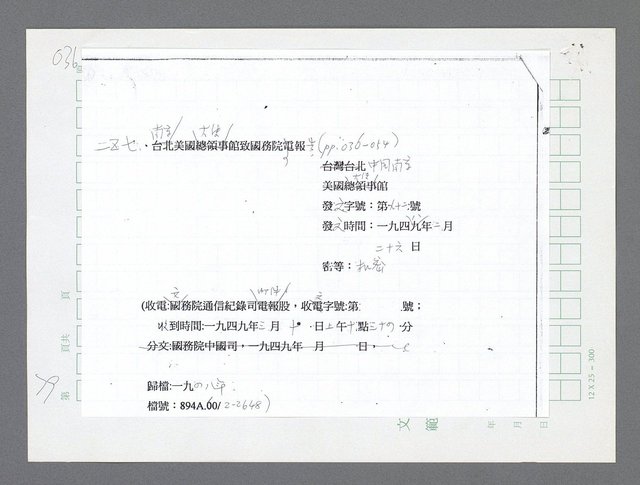 036
二五七、台北美國總領事館致國務院電報 (pp.036-054)
南京 大使
台灣台北 中國南京
美國總領事館
大使
發文字號：第 號
發文時間：一九四九年二月
二十六日
密等：機密
(收電:國務院通信紀錄司電報股，收電字號:第 號；
收到時間:一九四九年三月 日上午十點三十四分
分文:國務院中國司，一九四九年 月 日，
歸檔:一九四八年
檔號：894A.00/2-2648)
頁
頁共
第
12 X 25 = 300
文 範
年 月 日